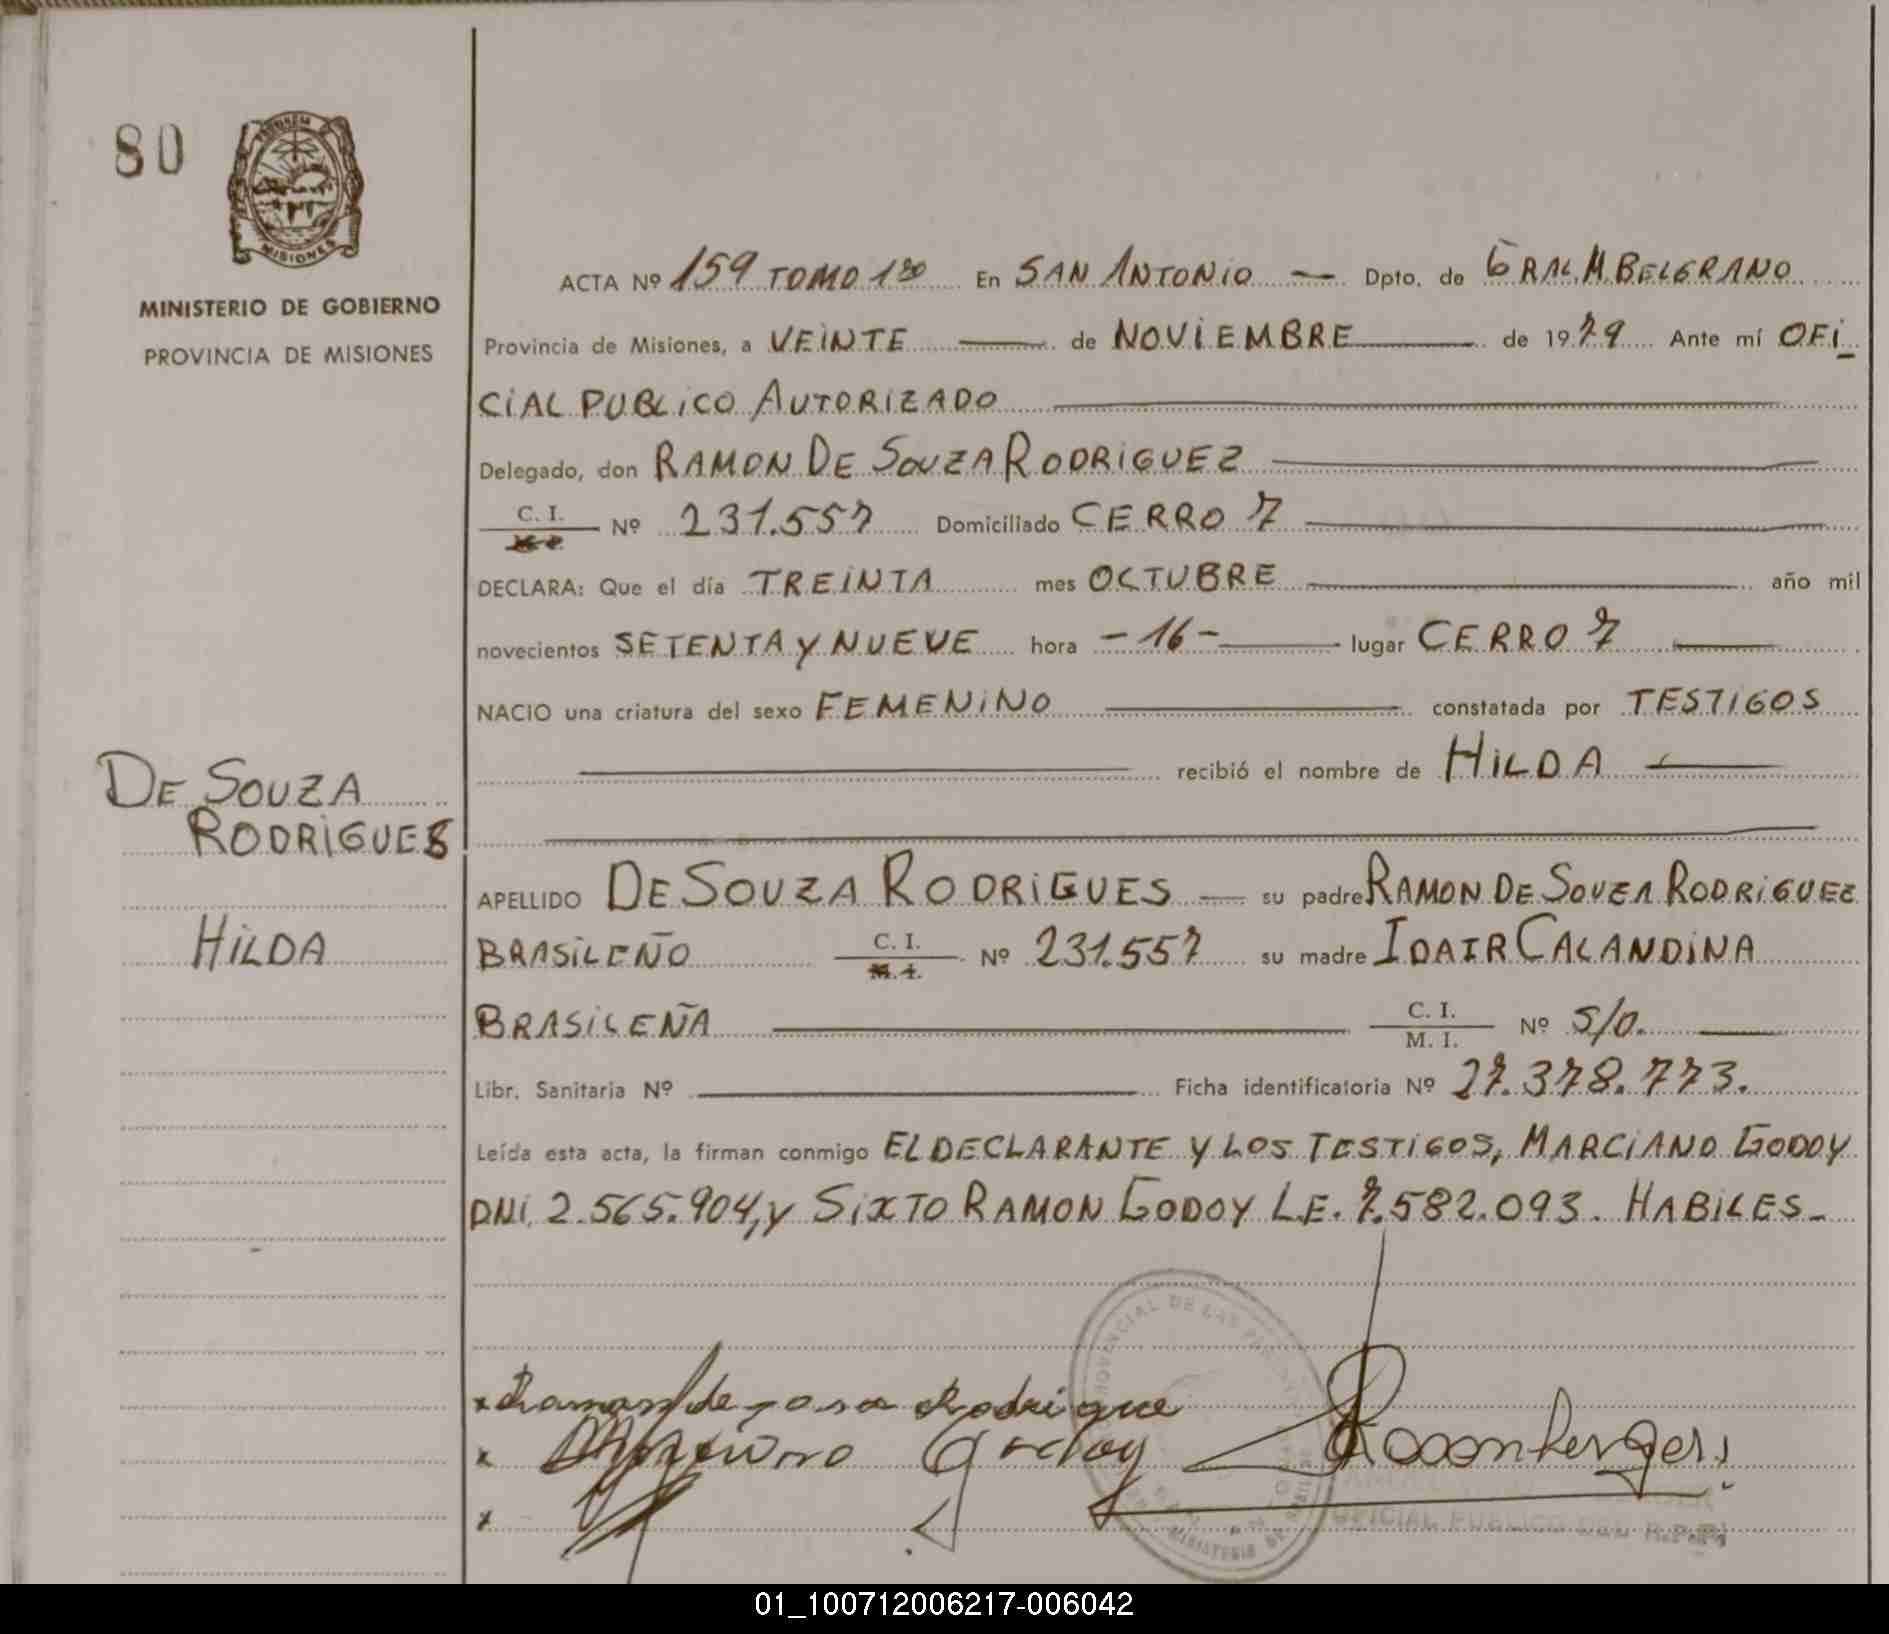 80
PROVINCIA DE
MISIONES
MINISTERIO DE GOBIERNO
PROVINCIA DE MISIONES
DE SOUZA
RODRIGUES
HILDA
ACTA Nº 159 TOMO 1ro En SAN ANTONIO — Dpto. de GRAL. M. BELGRANO
Provincia de Misiones, a VEINTE — de NOVIEMBRE — de 1979 Ante mí OFI_
CIAL PUBLICO AUTORIZADO —
Delegado, don RAMON DE SOUZA RODRIGUEZ —
C. I. Nº 231.557 Domiciliado CERRO 7 —
DECLARA: Que el día TREINTA mes OCTUBRE — año mil
novecientos SETENTA Y NUEVE hora -16- — lugar CERRO 7 —
NACIO una criatura del sexo FEMENINO — constatada por TESTIGOS
— recibió el nombre de HILDA —
APELLIDO DE SOUZA RODRIGUES — su padre RAMON DE SOUZA RODRIGUEZ
BRASILEÑO C. I. M. I. Nº 231.557 su madre IDAIR CALANDINA
BRASILEÑA — C. I. M. I. Nº S/D. —
Libr. Sanitaria Nº — Ficha identificatoria Nº 27.378.773.
Leída esta acta, la firman conmigo EL DECLARANTE Y LOS TESTIGOS, MARCIANO GODOY
DNI. 2.565.904, y SIXTO RAMON GODOY L.E. 7.582.093. HABILES-
PROVINCIAL DE LAS
MINISTERIO DE
x Ramon de Rodrigue
x Godoy
x
OFICIAL PUBLICO DEL R.P.P.
01_100712006217-006042